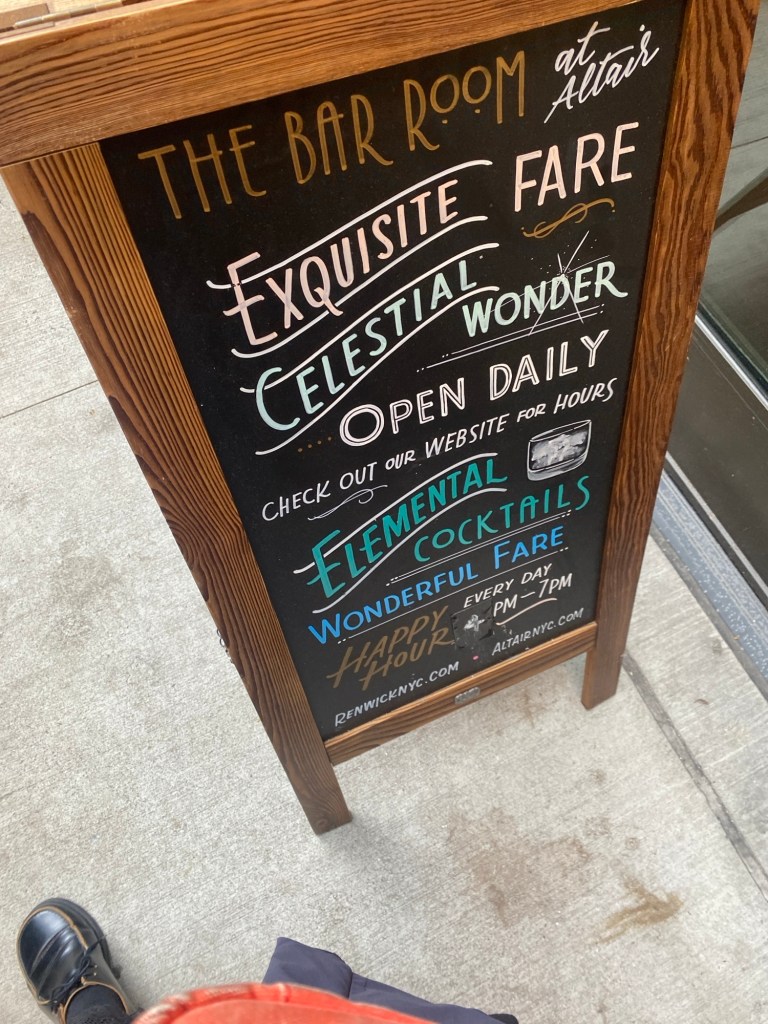 THE BAR ROOM at Altair
EXQUISITE FARE
CELESTIAL WONDER
OPEN DAILY
CHECK OUT OUR WEBSITE FOR HOURS
ELEMENTAL COCKTAILS
WONDERFUL FARE
HAPPY HOUR EVERY DAY
PM - 7PM
RENWICKNYC.COM ALTAIRNYC.COM